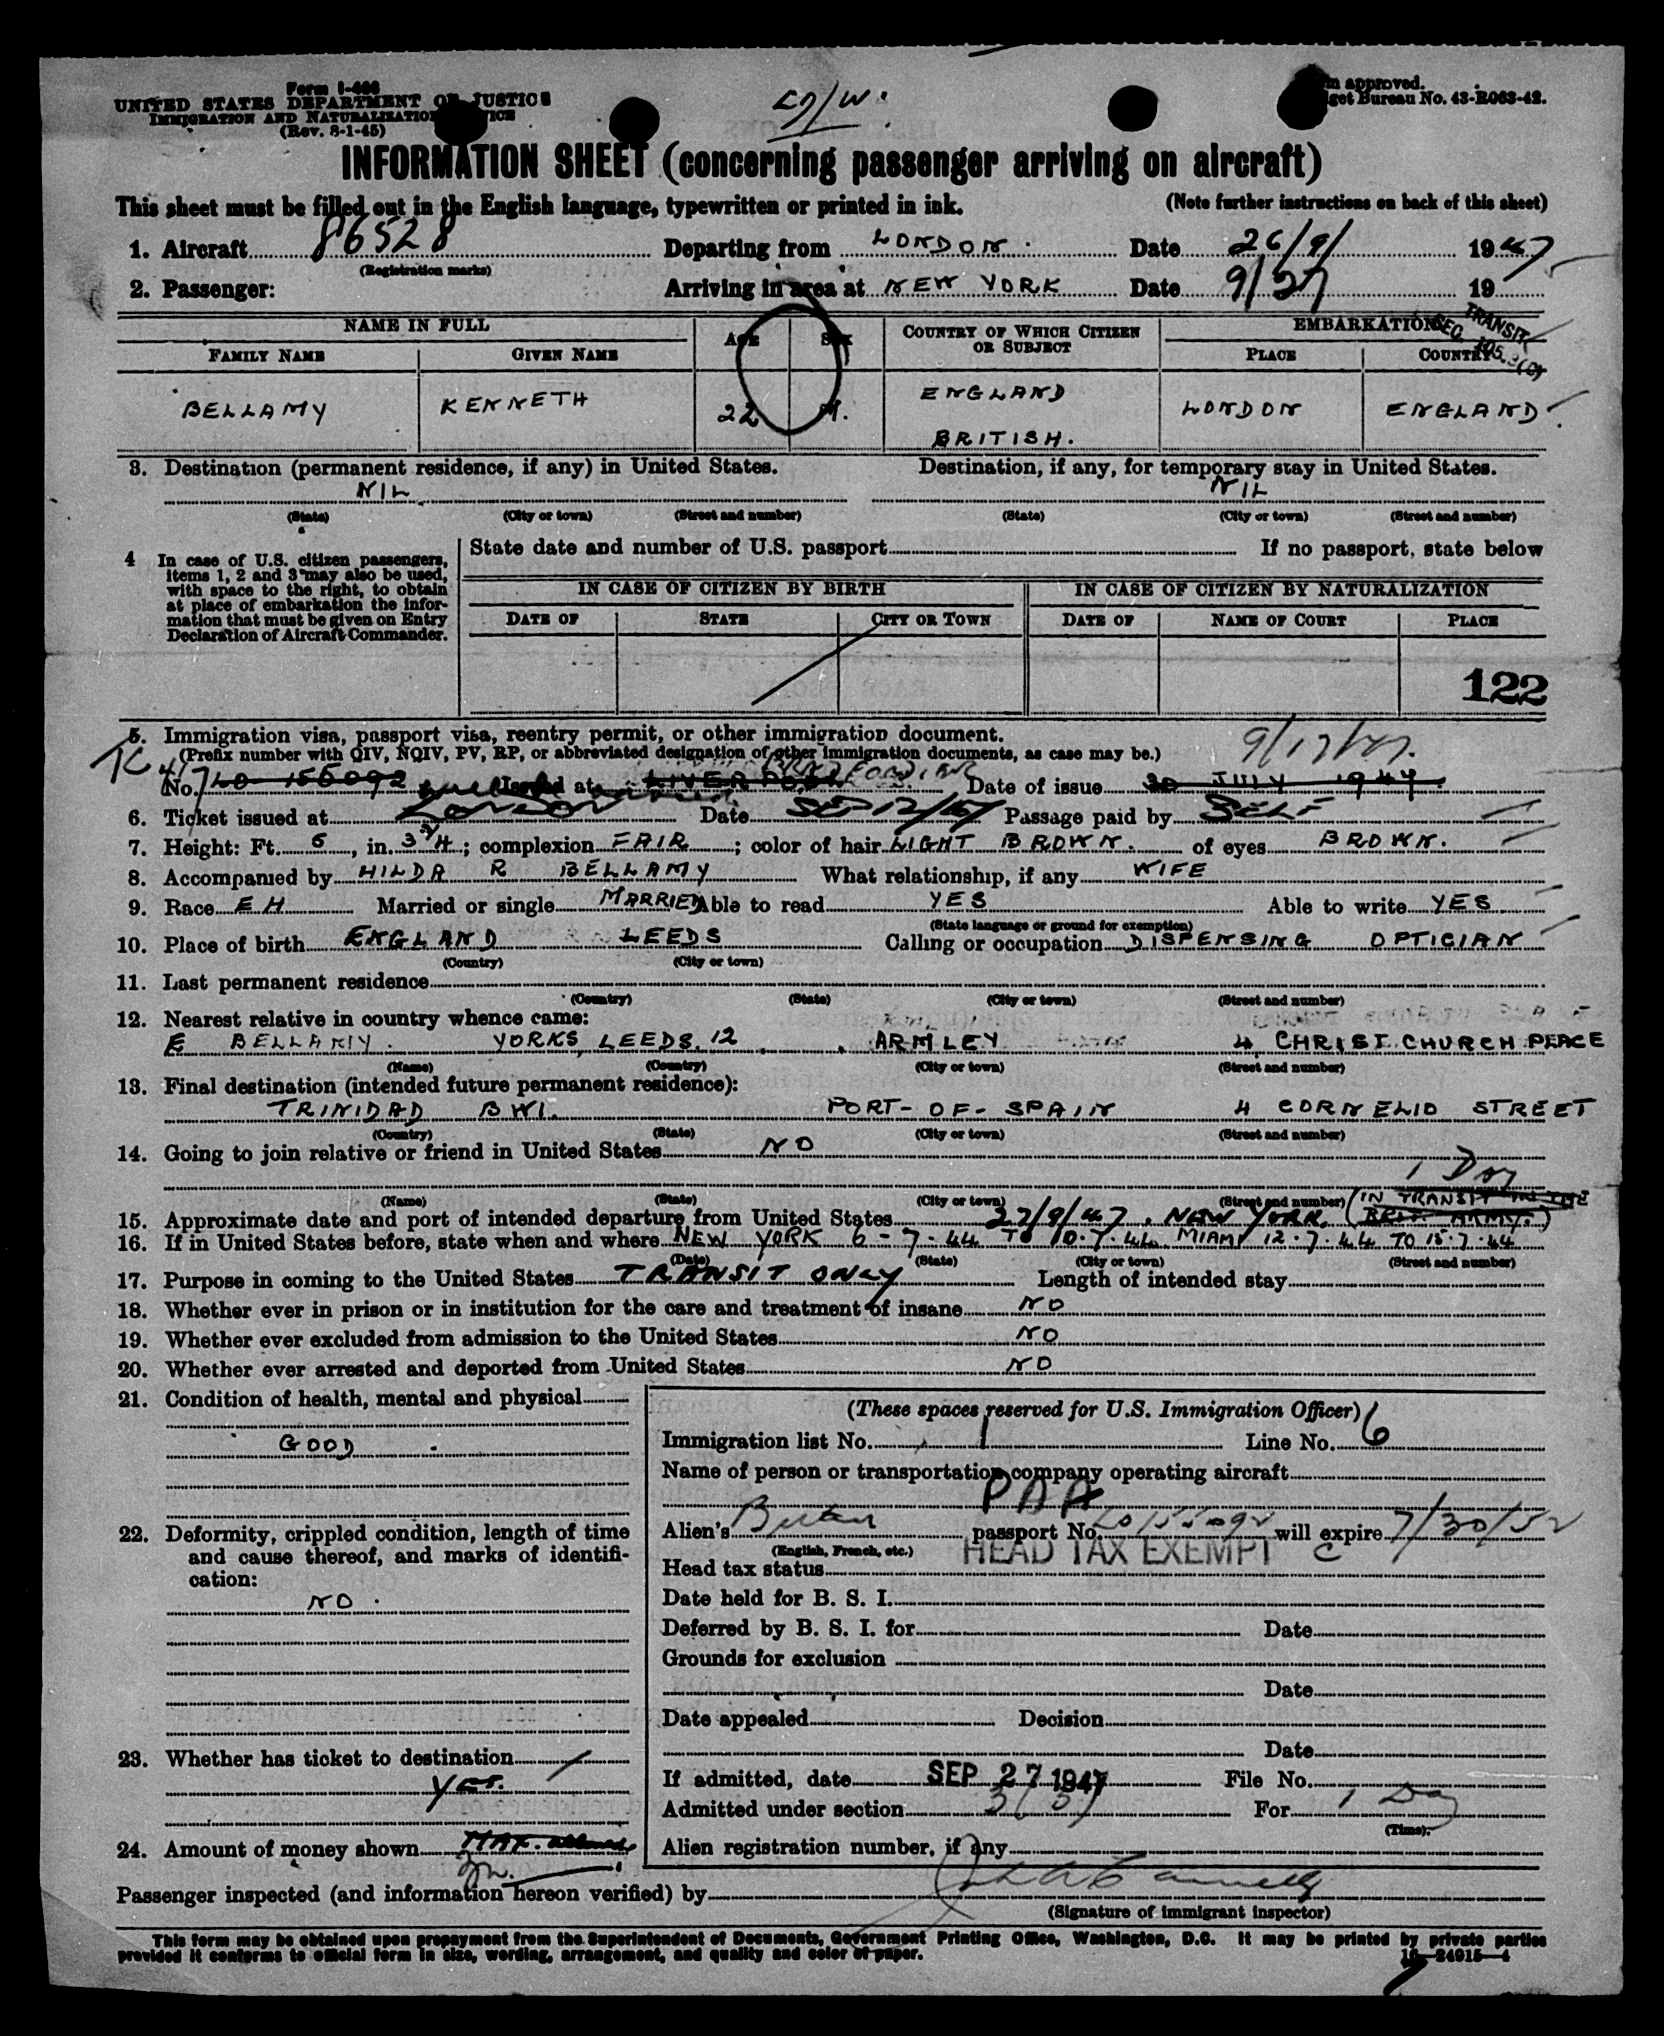 Form I-466
UNITED STATES DEPARTMENT OF JUSTICE
IMMIGRATION AND NATURALIZATION SERVICE
(Rev. 8-1-45)
approved.
get Bureau No. 43-R063-42.
INFORMATION SHEET (concerning passenger arriving on aircraft)
This sheet must be filled out in the English language, typewritten or printed in ink. (Note further instructions on back of this sheet)
1. Aircraft 86528 Departing from LONDON. Date 26/9/ 1947
(Registration marks)
2. Passenger: Arriving in area at NEW YORK Date 9/27 19
TRANSIT
SEC. 105.3(c)
NAME IN FULL AGE SEX COUNTRY OF WHICH CITIZEN OR SUBJECT EMBARKATION
FAMILY NAME GIVEN NAME PLACE COUNTRY
BELLAMY KENNETH 22 M. ENGLAND BRITISH. LONDON ENGLAND
3. Destination (permanent residence, if any) in United States. Destination, if any, for temporary stay in United States.
NIL NIL
(State) (City or town) (Street and number) (State) (City or town) (Street and number)
4 In case of U.S. citizen passengers, items 1, 2 and 3 may also be used, with space to the right, to obtain at place of embarkation the information that must be given on Entry Declaration of Aircraft Commander.
State date and number of U.S. passport If no passport, state below
IN CASE OF CITIZEN BY BIRTH IN CASE OF CITIZEN BY NATURALIZATION
DATE OF STATE CITY OR TOWN DATE OF NAME OF COURT PLACE
122
5. Immigration visa, passport visa, reentry permit, or other immigration document.
(Prefix number with QIV, NQIV, PV, RP, or abbreviated designation of other immigration documents, as case may be.) 9/17/47.
No. LO 155092 Issued at LIVERPOOL Date of issue 30 JULY 1947.
6. Ticket issued at London Date SEP 12/47 Passage paid by SELF
7. Height: Ft. 5, in. 3 3/4; complexion FAIR; color of hair LIGHT BROWN. of eyes BROWN.
8. Accompanied by HILDA R BELLAMY What relationship, if any WIFE
9. Race EH Married or single MARRIED Able to read YES Able to write YES
(State language or ground for exemption)
10. Place of birth ENGLAND LEEDS Calling or occupation DISPENSING OPTICIAN
(Country) (City or town)
11. Last permanent residence
(Country) (State) (City or town) (Street and number)
12. Nearest relative in country whence came:
E BELLAMY. YORKS, LEEDS. 12. ARMLEY 4 CHRIST CHURCH PLACE
(Name) (Country) (City or town) (Street and number)
13. Final destination (intended future permanent residence):
TRINIDAD BWI. PORT-OF-SPAIN 4 CORNELIO STREET
(Country) (State) (City or town) (Street and number)
14. Going to join relative or friend in United States NO
1 Day
(Name) (State) (City or town) (Street and number) (IN TRANSIT IN THE
15. Approximate date and port of intended departure from United States 27/9/47. NEW YORK. (BRIT ARMY.)
16. If in United States before, state when and where NEW YORK 6-7-44 TO 10.7.44 MIAMI 12.7.44 TO 15.7.44
(Date) (State) (City or town) (Street and number)
17. Purpose in coming to the United States TRANSIT ONLY Length of intended stay
18. Whether ever in prison or in institution for the care and treatment of insane NO
19. Whether ever excluded from admission to the United States NO
20. Whether ever arrested and deported from United States NO
21. Condition of health, mental and physical
GOOD
22. Deformity, crippled condition, length of time and cause thereof, and marks of identification:
NO.
23. Whether has ticket to destination
Yes.
24. Amount of money shown MAX. allowed
(These spaces reserved for U.S. Immigration Officer)
Immigration list No. 1 Line No. 6
Name of person or transportation company operating aircraft
PAA
Alien's Britain passport No. LO 155092 will expire 7/30/52
(English, French, etc.) HEAD TAX EXEMPT C
Head tax status
Date held for B. S. I.
Deferred by B. S. I. for Date
Grounds for exclusion
Date
Date appealed Decision
Date
If admitted, date SEP 27 1947 File No.
Admitted under section 3(3) For 1 Day
(Time)
Alien registration number, if any
Passenger inspected (and information hereon verified) by
(Signature of immigrant inspector)
This form may be obtained upon prepayment from the Superintendent of Documents, Government Printing Office, Washington, D.C. It may be printed by private parties
provided it conforms to official form in size, wording, arrangement, and quality and color of paper. 16—24915-4